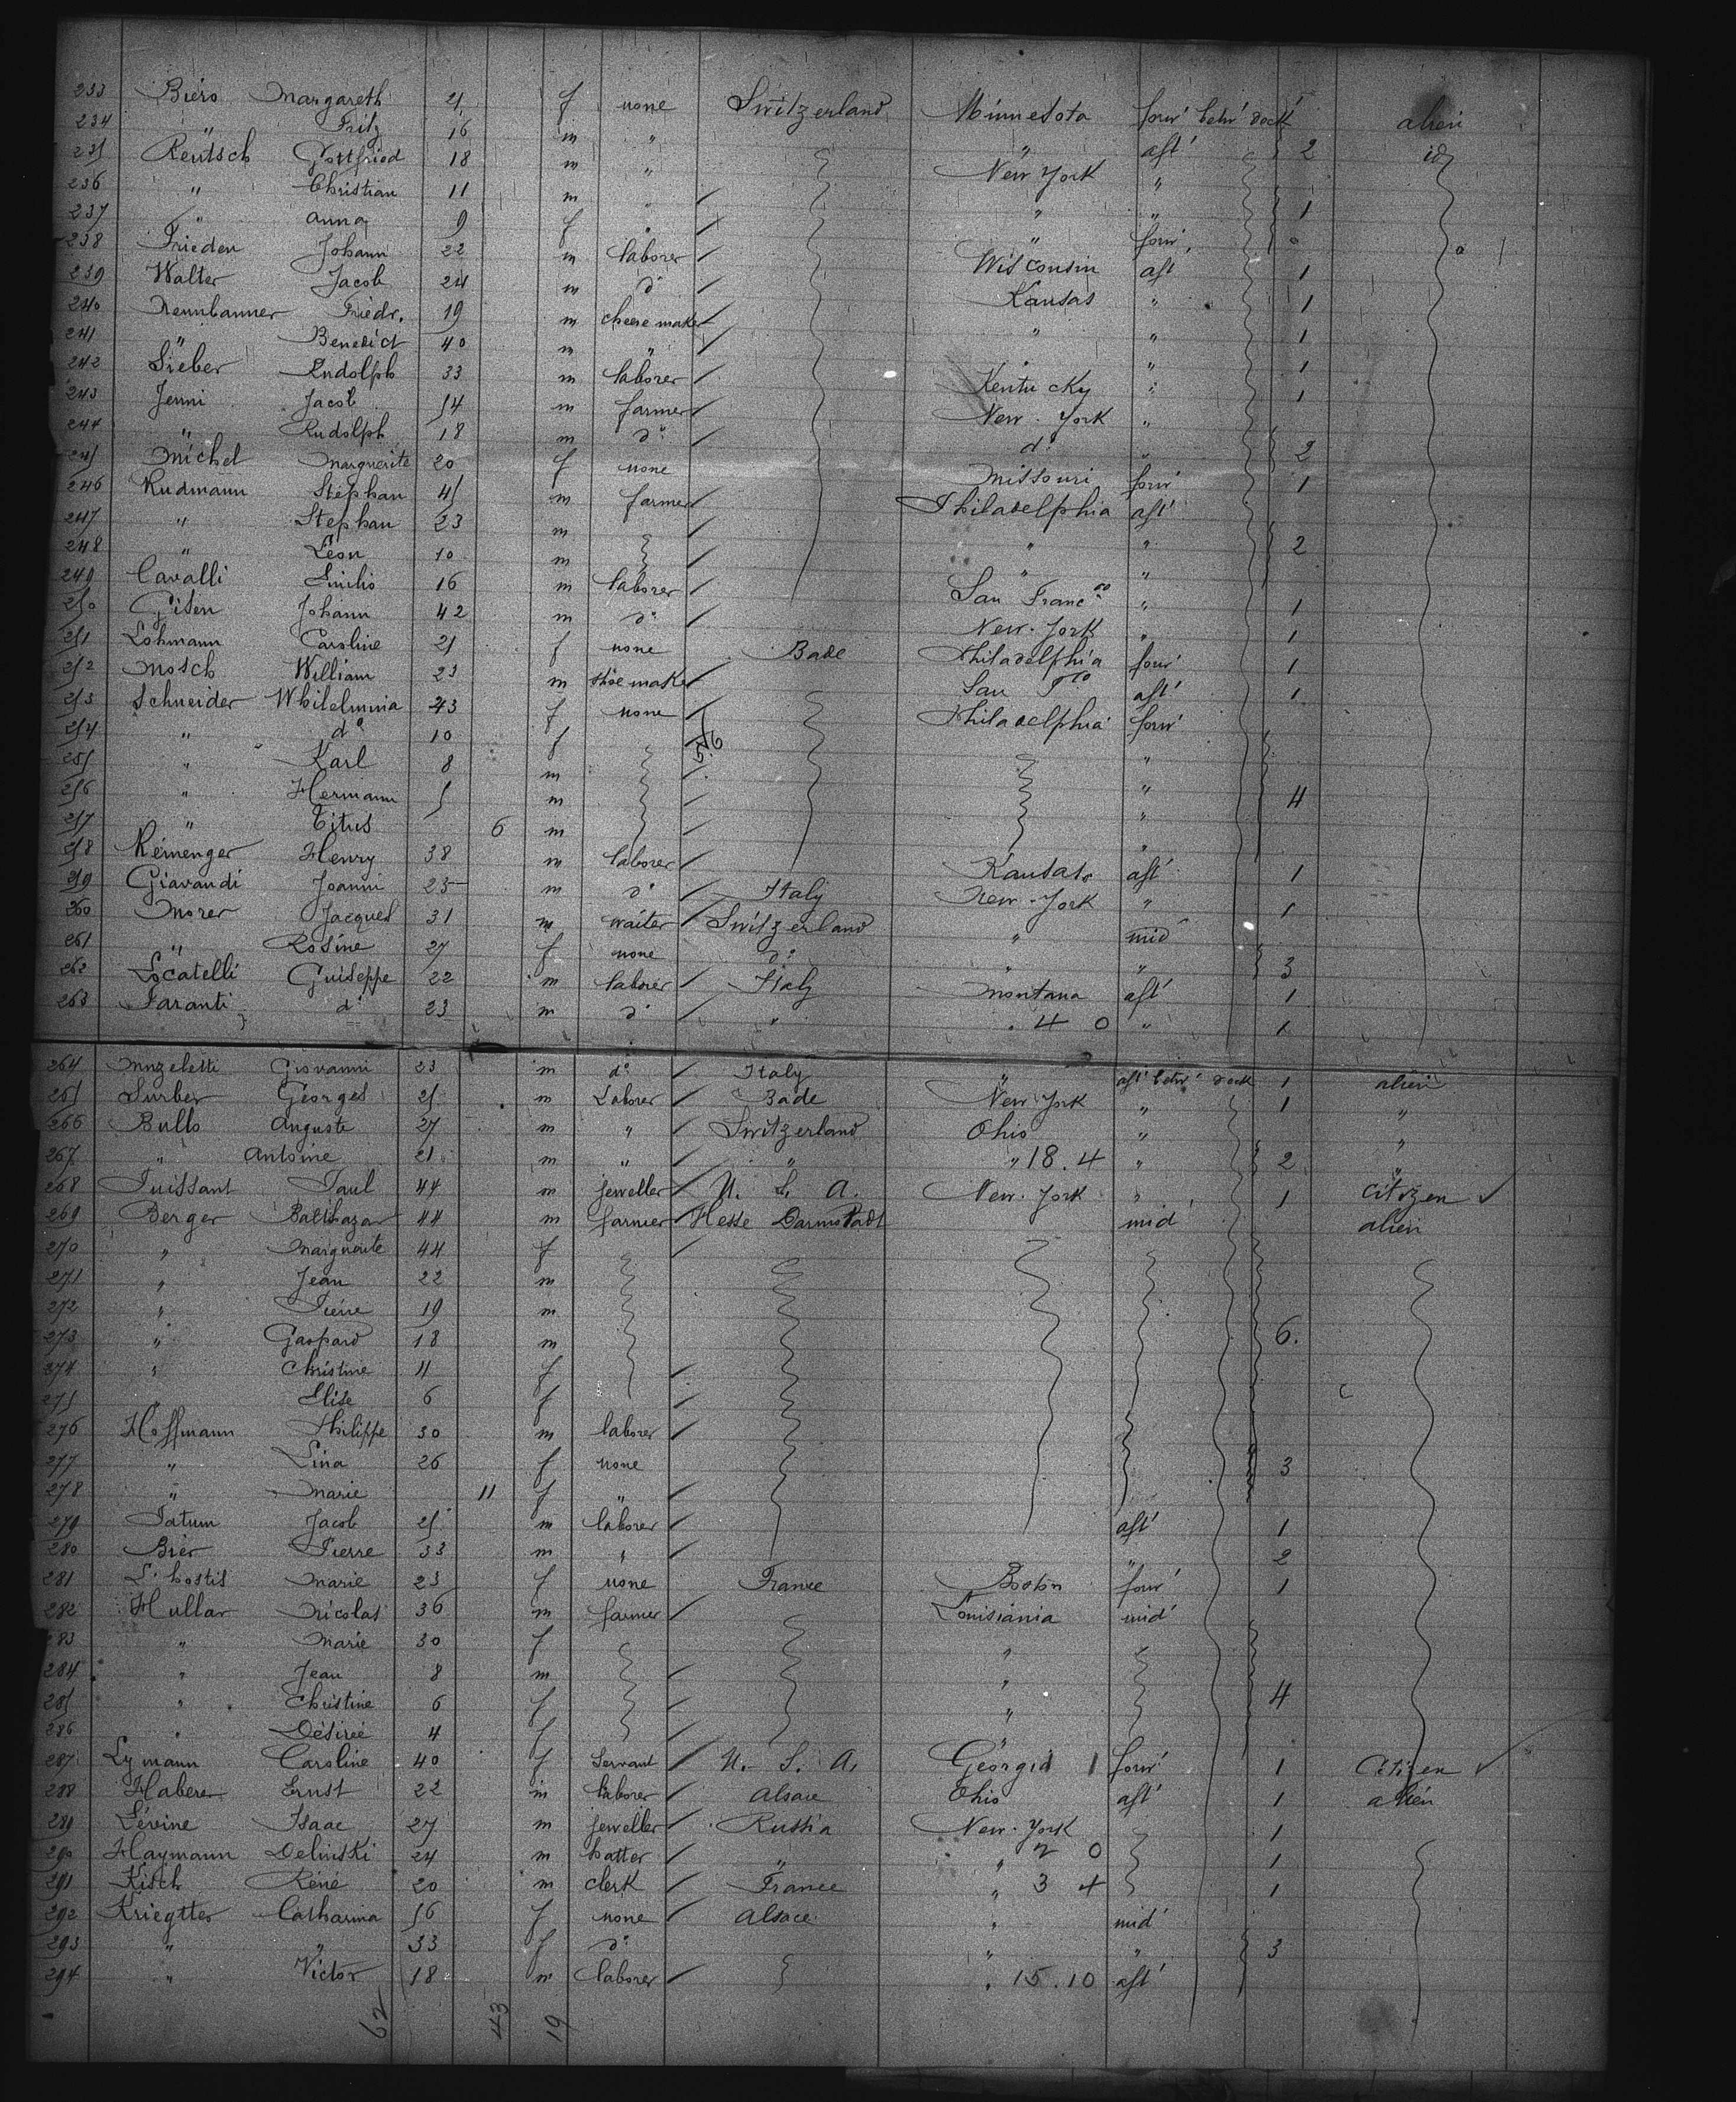 233 Biéro Margareth 21 f none Switzerland Minnesota forw' betw' deck alien
234 " Fritz 16 m " " aft' 2 id
235 Rentsch Gottfried 18 m " New York "
236 " Christian 11 m " " " 1
237 " Anna 9 f " " forw'
238 Frieden Johann 22 m laborer Wisconsin aft' 1
239 Walter Jacob 24 m d° Kansas " 1
240 Dennbanner Friedr. 19 m cheese maker " " 1
241 " Benedict 40 m " " " 1
242 Sieber Rudolph 33 m laborer Kentucky " 1
243 Jenni Jacob 54 m farmer New-York "
244 " Rudolph 18 m d° d° " 2
245 Michel Marguerite 20 f none Missouri forw' 1
246 Rudmann Stephan 45 m farmer Philadelphia aft'
247 " Stephan 23 m " " 2
248 " Léon 10 m " "
249 Cavalli Emilio 16 m laborer San Franc^co " 1
250 Gisen Johann 42 m d° New-York " 1
251 Lohmann Caroline 21 f none Bade Philadelphia forw' 1
252 Mosch William 23 m shoe maker San F^co aft' 1
253 Schneider Whilelmina 43 f none Philadelphia forw'
254 " d° 10 f "
255 " Karl 8 m "
256 " Hermann 5 m " 4
257 " Titus 6 m "
258 Reinenger Henry 38 m laborer Kansas aft' 1
259 Giavandi Joanni 25 m d° Italy New-York " 1
260 Morer Jacques 31 m waiter Switzerland " mid'
261 " Rosine 27 f none d° " " 3
262 Locatelli Guiseppe 22 m laborer Italy Montana aft' 1
263 Faranti d° 23 m d° " " 4 0 " 1
264 Muzeletti Giovanni 23 m d° Italy " aft' betw' deck 1 alien
265 Surber Georges 25 m Laborer Bade New York " 1 "
266 Bullo Auguste 27 m " Switzerland Ohio " "
267 " Antoine 21 m " " " 18.4 " 2 "
268 Puissant Paul 44 m jeweller U. S. A. New-York " 1 citizen
269 Berger Balthazar 44 m farmer Hesse Darmstadt mid' alien
270 " Marguerite 44 f
271 " Jean 22 m
272 " Pierre 19 m
273 " Gaspard 18 m 6.
274 " Christine 11 f
275 " Elise 6 f
276 Hoffmann Philippe 30 m laborer
277 " Lina 26 f none 3
278 " Marie 11 f "
279 Patum Jacob 25 m laborer aft' 1
280 Brer Pierre 33 m " " 2
281 L'hostis Marie 23 f none France Boston forw' 1
282 Hullar Nicolas 36 m farmer Louisiania mid'
283 " Marie 30 f "
284 " Jean 8 m "
285 " Christine 6 f " 4
286 " Désirée 4 f
287 Lymann Caroline 40 f Servant U. S. A. Georgia 1 forw' 1 Citizen
288 Haberer Ernst 22 m laborer Alsace Ohio aft' 1 alien
289 Lévine Isaac 27 m jeweller Russia New-York 1
290 Haymann Delinski 24 m hatter " " 2 0 1
291 Kisch Réné 20 m clerk France " 3 4 1
292 Kriegtter Catharina 56 f none Alsace " mid'
293 " " 33 f d° " " 3
294 " Victor 18 m laborer " 15.10 aft'
62 43 19